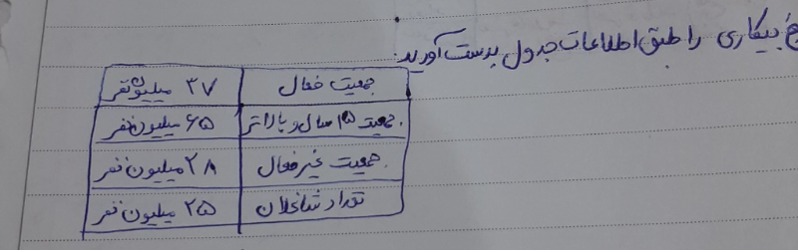 بیکاری را طبق اطلاعات جدول بدست آورید.
جمعیت فعال ۳۷ میلیون نفر
جمعیت ۱۵ سال و بالاتر ۶۵ میلیون نفر
جمعیت غیرفعال ۲۸ میلیون نفر
تعداد شاغلان ۲۵ میلیون نفر